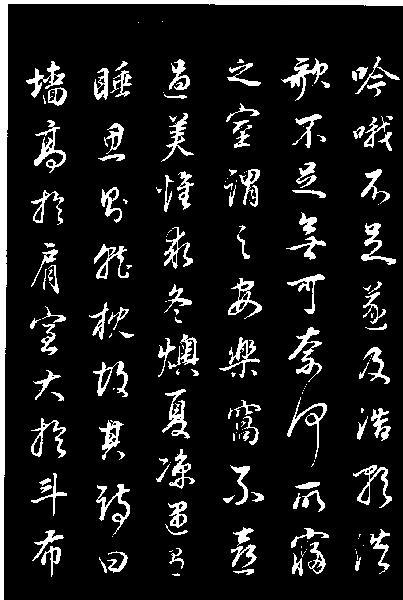 吟哦不足遂及浩歌浩
歌不足無可奈何所寢
之室謂之安樂窩不喜
過美惟求冬燠夏涼遇有
睡思則就枕故其詩曰
墻高於肩室大於斗布